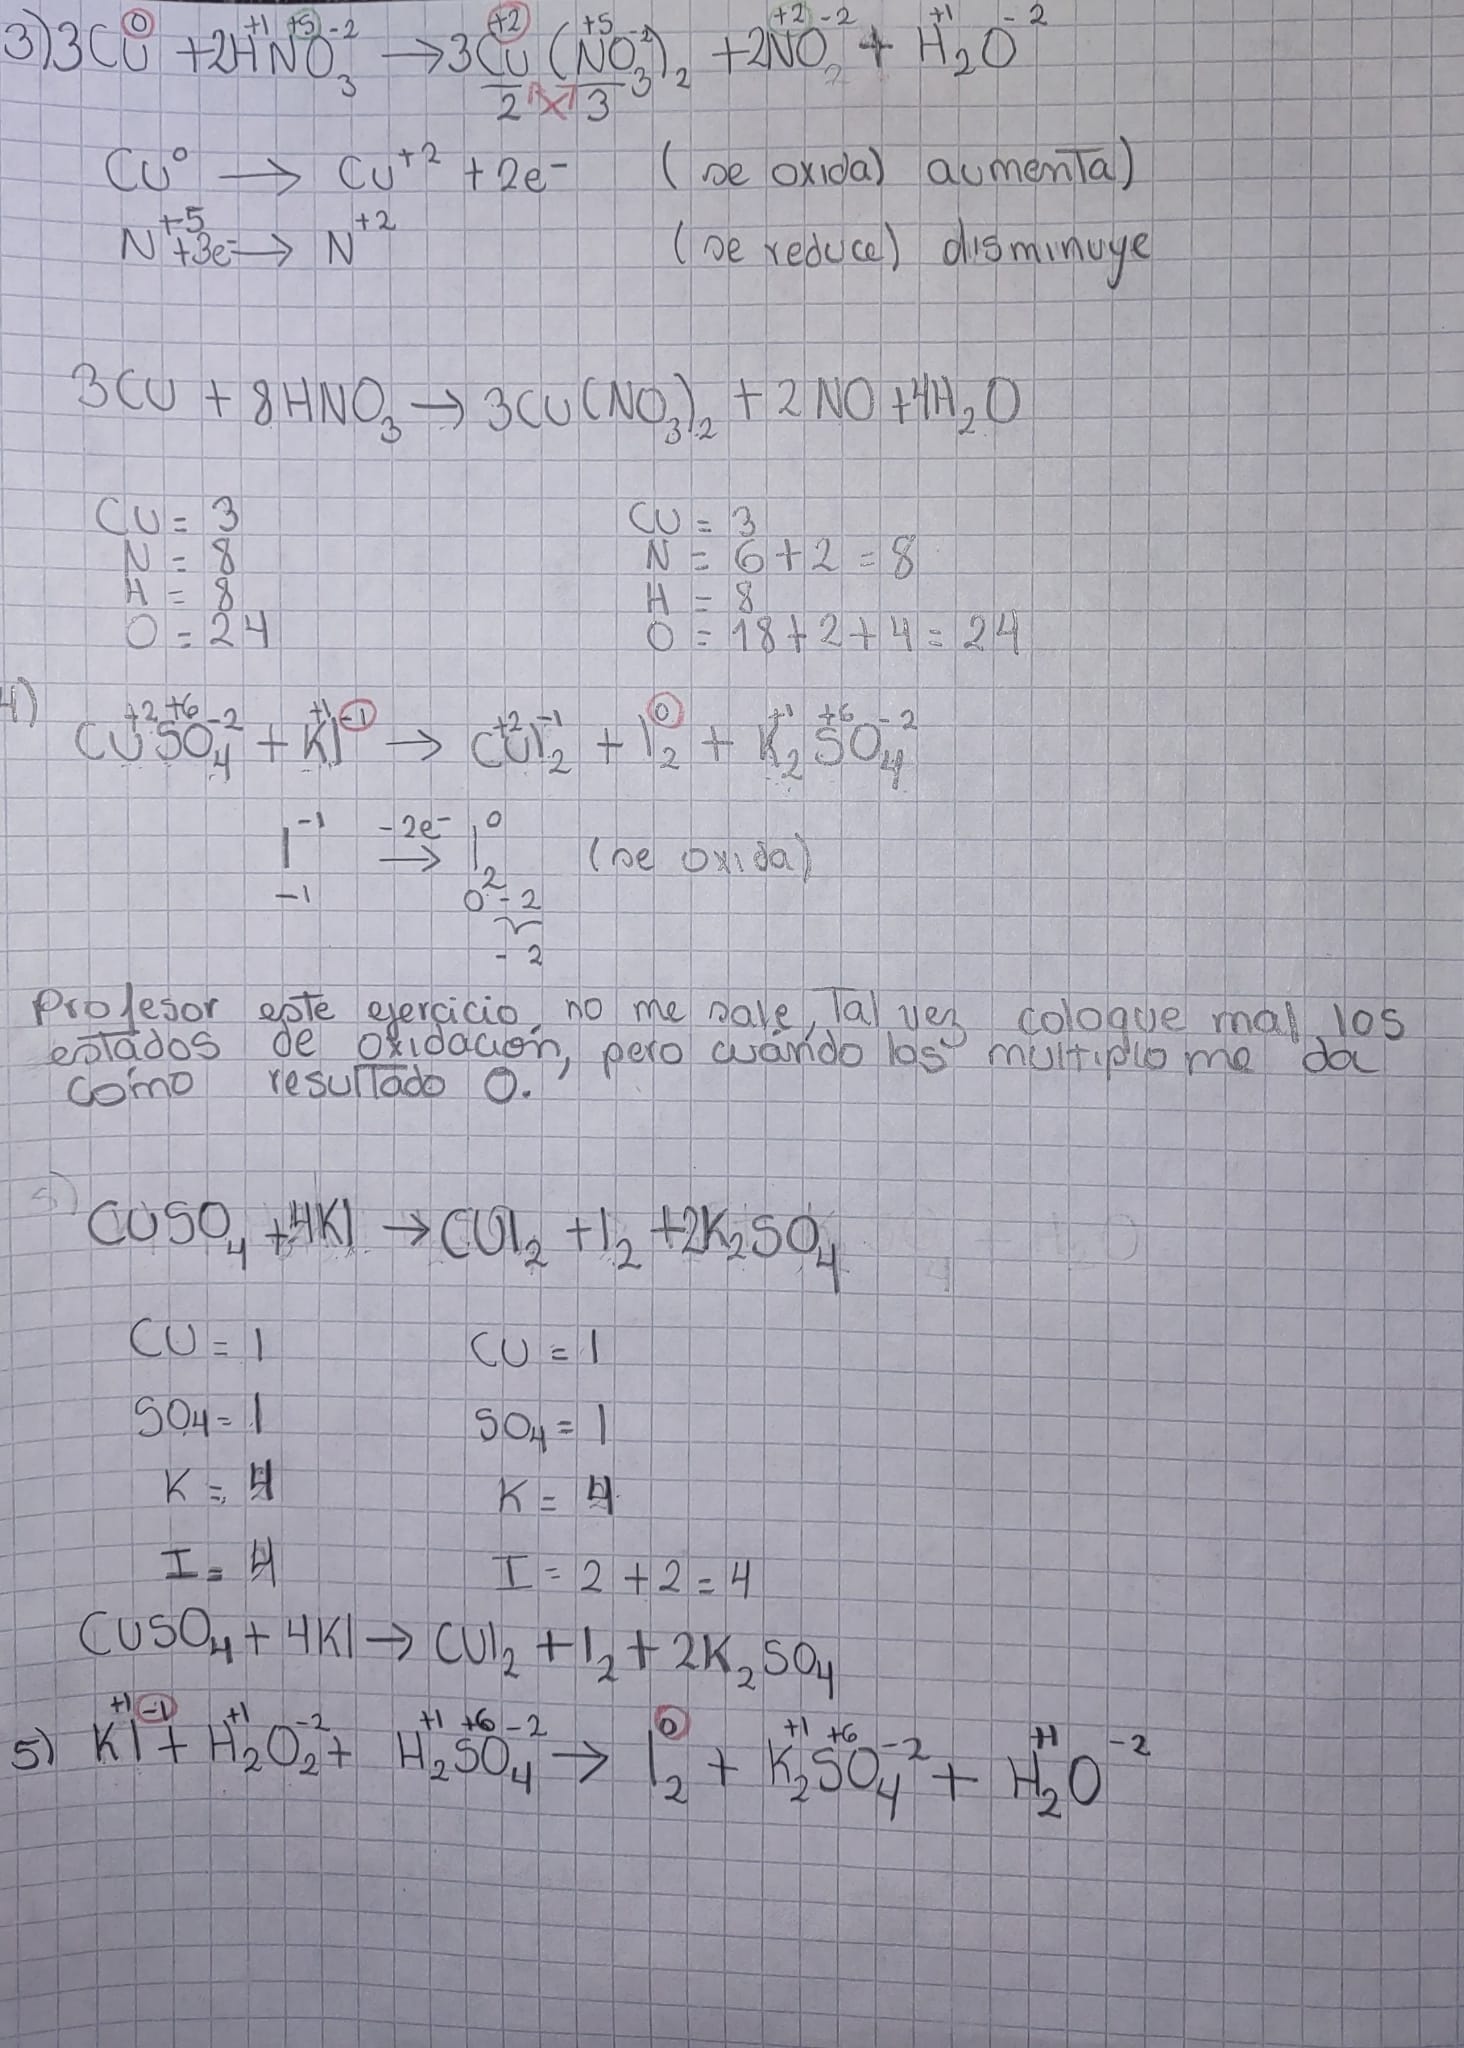 3) 3Cu⁰ + 2H⁺¹N⁺⁵O₃⁻² → 3Cu⁺²(N⁺⁵O₃⁻²)₂ + 2N⁺²O₂⁻² + H₂⁺¹O⁻²
2 3
Cu⁰ → Cu⁺² + 2e⁻ (se oxida) aumenta)
N⁺⁵ +3e⁻ → N⁺² (se reduce) disminuye
3Cu + 8HNO₃ → 3Cu(NO₃)₂ + 2NO + 4H₂O
Cu = 3 Cu = 3
N = 8 N = 6 + 2 = 8
H = 8 H = 8
O = 24 O = 18 + 2 + 4 = 24
4) Cu⁺²S⁺⁶O₄⁻² + K⁺¹I⁻¹ → Cu⁺²I₂⁻¹ + I₂⁰ + K₂⁺¹S⁺⁶O₄⁻²
I⁻¹ -2e⁻ → I₂⁰ (se oxida)
-1 0 - 2
- 2
Profesor este ejercicio no me sale, Tal vez coloque mal los
estados de oxidación, pero cuándo los multiplo me da
como resultado 0.
CuSO₄ + 4KI → CuI₂ + I₂ + 2K₂SO₄
Cu = 1 Cu = 1
SO₄ = 1 SO₄ = 1
K = 4 K = 4
I = 4 I = 2 + 2 = 4
CuSO₄ + 4KI → CuI₂ + I₂ + 2K₂SO₄
5) K⁺¹I⁻¹ + H₂⁺¹O₂⁻² + H₂⁺¹S⁺⁶O₄⁻² → I₂⁰ + K₂⁺¹S⁺⁶O₄⁻² + H₂⁺¹O⁻²